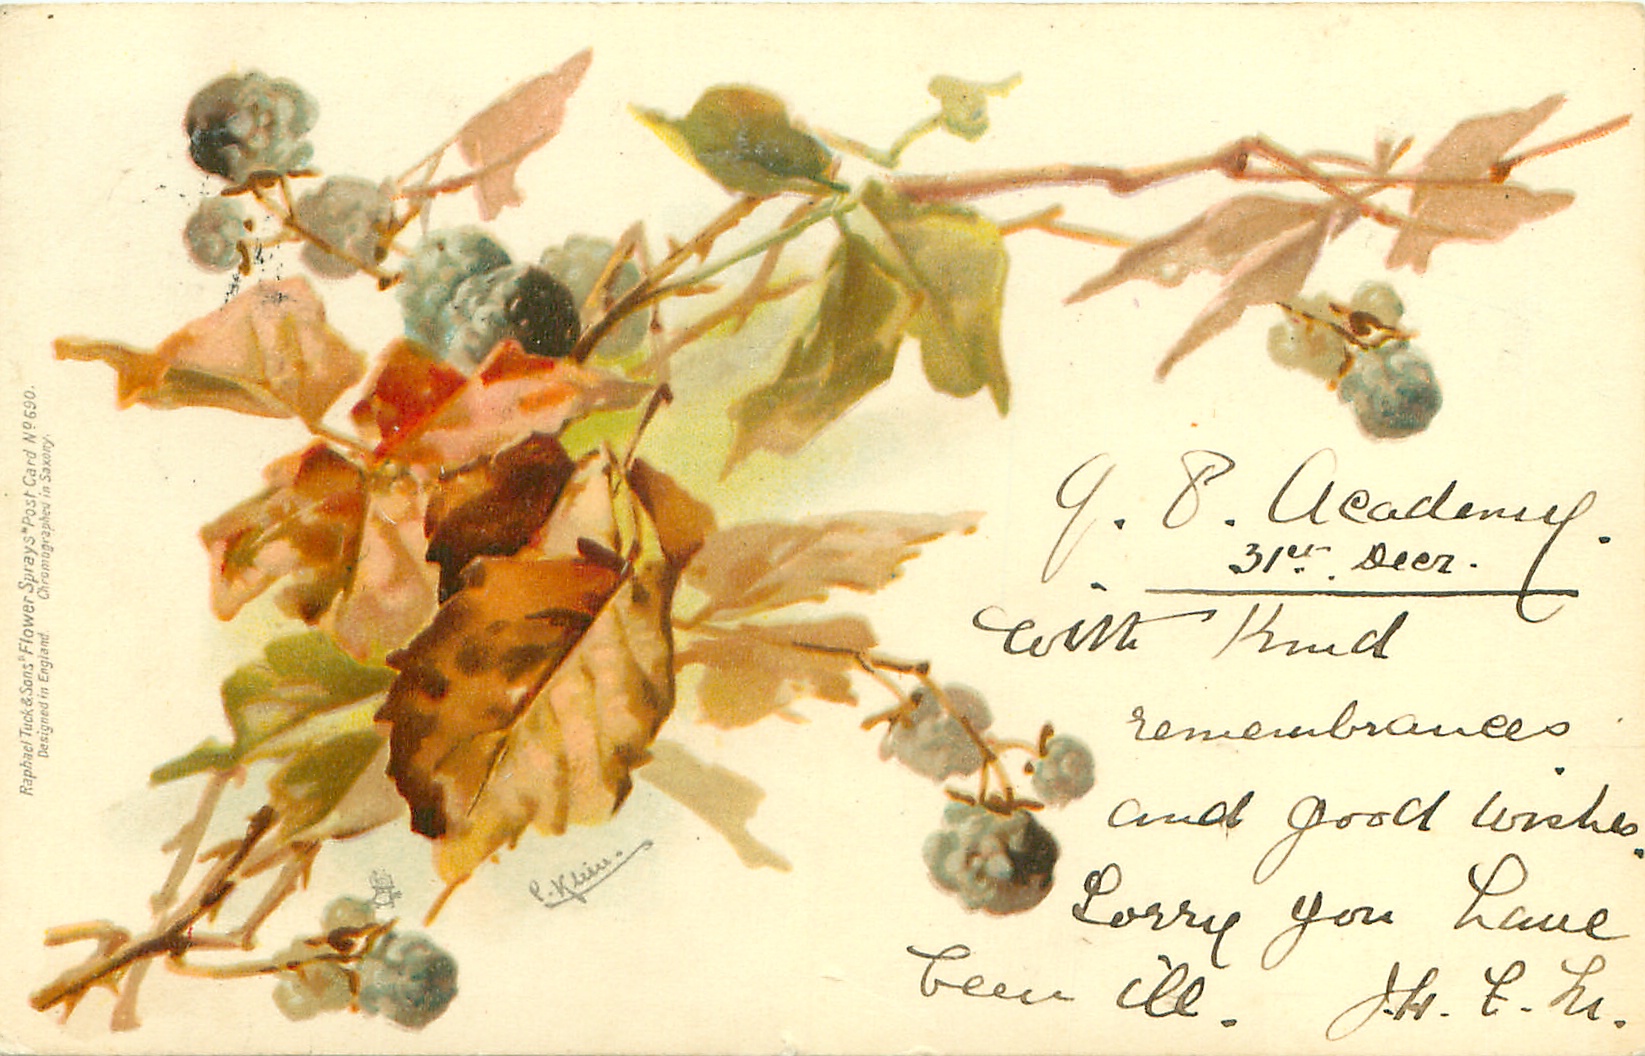 Raphael Tuck & Sons' "Flower Sprays" Post Card Nº 690.
Designed in England. Chromographed in Saxony.
C. Klein.
G. P. Academy.
31st Decr.
With Kind
remembrances
and good wishes.
Sorry you have
been ill.